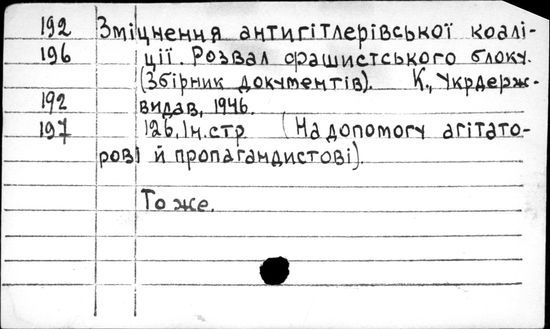 192 Зміцнення антигітлерівської коалі-
196 ції. Розвал фашистського блоку.
(Збірник документів). К., Укрдерж-
192 видав, 1946.
197 126, 1 н. стр (На допомогу агітато-
рові й пропагандистові).
То же.